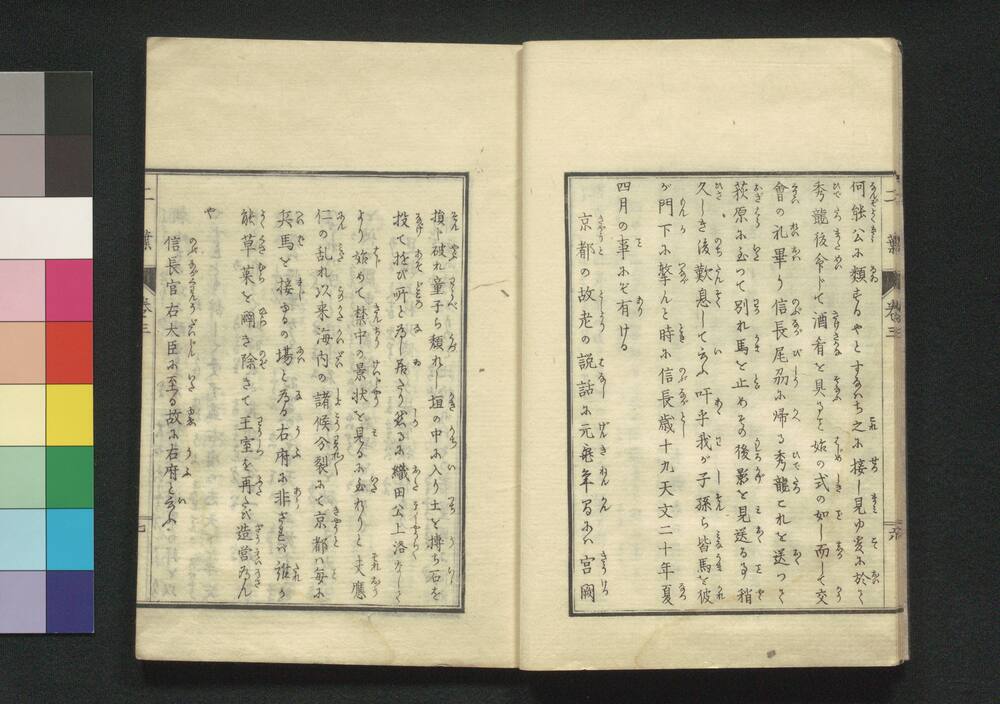 何能公に類するやとすなはち之に接し見ゆ爰に於て
秀龍後命じて酒肴を具ること始の式の如し而して交
會の礼畢り信長尾州に帰る秀龍これを送つて
荻原に至つて別れ馬を止めその後影を見送る事稍
久しき後歎息して云ふ吁乎我が子孫ら皆馬を彼
が門下に撃んと時に信長歳十九天文二十年夏
四月の事にぞ有ける
京都の故老の説話に元亀年間には宮闕
損し破れ童子ら頽れし垣の中に入り土を摶ち石を
投て遊び所と為し居たり然るに織田公上洛なして
より始めて禁中の景状を見るに至れりと夫應
仁の乱れ以来海内の諸候分裂にて京都は毎に
兵馬を接ゆるの場と為る右府に非ざれば誰か
能草莱を闢き除きて王室を再び造営為ん
や
信長官右大臣に至る故に右府と云ふ
二葉
巻三
六
二葉
巻三
七